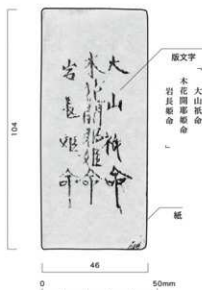 大山祇命
木花開耶姫命
岩長姫命
版文字
「
大山祇命
木花開耶姫命
岩長姫命
」
紙
104
46
0
50mm